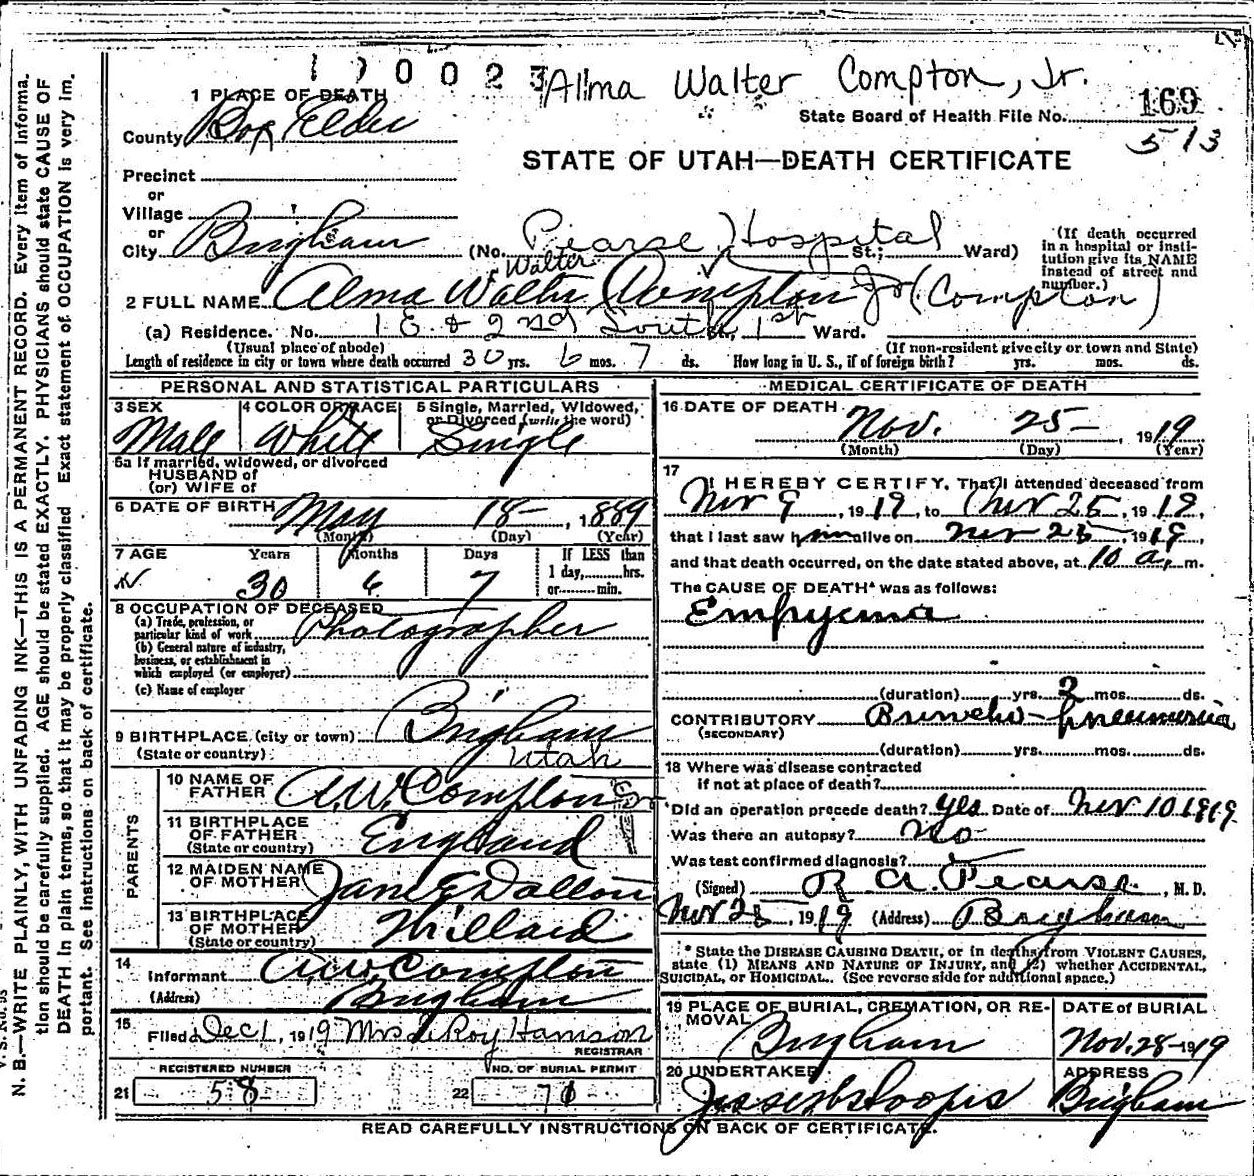 Alma Walter Compton, Jr.
1 PLACE OF DEATH
169
State Board of Health File No.
513
County Box Elder
STATE OF UTAH—DEATH CERTIFICATE
Precinct
or
Village
or
City Brigham (No. Pearse Hospital St.; Ward) (If death occurred in a hospital or insti-
tution give its NAME
instead of street and
number.)
Walter
2 FULL NAME Alma Walter Compton Jr (Compton)
(a) Residence. No. 1 E. & 2nd South, 1st Ward.
(Usual place of abode) (If non-resident give city or town and State)
Length of residence in city or town where death occurred 30 yrs. 6 mos. 7 ds. How long in U. S., if of foreign birth? yrs. mos. ds.
PERSONAL AND STATISTICAL PARTICULARS
3 SEX
Male
4 COLOR OR RACE
White
5 Single, Married, Widowed,
or Divorced (write the word)
Single
5a If married, widowed, or divorced
HUSBAND of
(or) WIFE of
6 DATE OF BIRTH May 18 , 1889
(Month) (Day) (Year)
7 AGE Years Months Days If LESS than
1 day, hrs.
or min.
30 6 7
8 OCCUPATION OF DECEASED
(a) Trade, profession, or
particular kind of work Photographer
(b) General nature of industry,
business, or establishment in
which employed (or employer)
(c) Name of employer
9 BIRTHPLACE (city or town) Brigham
(State or country) Utah
PARENTS
10 NAME OF
FATHER A.W. Compton
11 BIRTHPLACE
OF FATHER England
(State or country)
12 MAIDEN NAME
OF MOTHER Jane E Dallon
13 BIRTHPLACE
OF MOTHER Willard
(State or country)
14
Informant A.W. Compton
(Address) Brigham
15
Filed Dec 1, 1919 Mrs LeRoy Harrison
REGISTRAR
REGISTERED NUMBER
21 58
NO. OF BURIAL PERMIT
22 70
MEDICAL CERTIFICATE OF DEATH
16 DATE OF DEATH
Nov. 25 , 1919
(Month) (Day) (Year)
17
I HEREBY CERTIFY, That I attended deceased from
Nov 9 , 1919, to Nov 25 , 1919,
that I last saw him alive on Nov 25 1919,
and that death occurred, on the date stated above, at 10 a. m.
The CAUSE OF DEATH* was as follows:
Empyema
(duration) yrs. 2 mos. ds.
CONTRIBUTORY Broncho-pneumonia
(SECONDARY)
(duration) yrs. mos. ds.
18 Where was disease contracted
if not at place of death?
Did an operation precede death? yes Date of Nov 10 1919
Was there an autopsy? No
Was test confirmed diagnosis?
(Signed) R A. Pearse , M. D.
Nov 25 , 1919 (Address) Brigham
* State the DISEASE CAUSING DEATH, or in deaths from VIOLENT CAUSES,
state (1) MEANS AND NATURE OF INJURY, and (2) whether ACCIDENTAL,
SUICIDAL, or HOMICIDAL. (See reverse side for additional space.)
19 PLACE OF BURIAL, CREMATION, OR RE-
MOVAL
Brigham
DATE OF BURIAL
Nov. 28 1919
20 UNDERTAKER
ADDRESS
Brigham
READ CAREFULLY INSTRUCTIONS ON BACK OF CERTIFICATE.
N. B.—WRITE PLAINLY, WITH UNFADING INK—THIS IS A PERMANENT RECORD. Every item of informa-
tion should be carefully supplied. AGE should be stated EXACTLY. PHYSICIANS should state CAUSE OF
DEATH in plain terms, so that it may be properly classified. Exact statement of OCCUPATION is very im-
portant. See instructions on back of certificate.